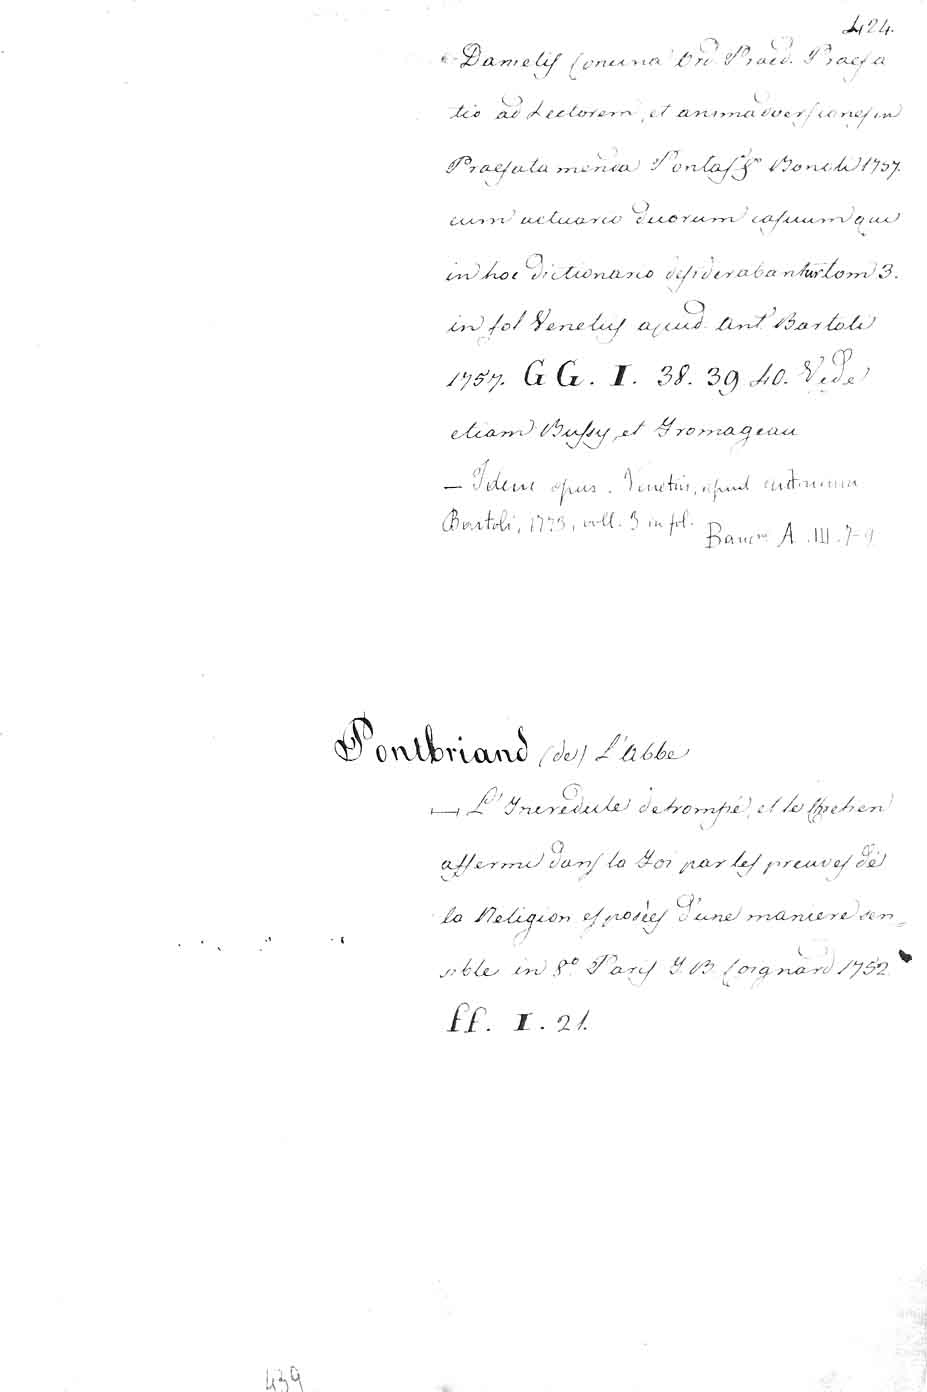 424.
Danielis Concina Ord. Praed. Praefa
tio ad Lectorem, et animadversiones in
Praefata mendia Pontas 8º Boneti 1757.
cum actuario duorum casuum qui
in hoc dictionario desiderabantur tom 3.
in fol Venetiis apud Ant. Bartoli
1757. GG. I. 38. 39 40. Vide
etiam Bussy, et Fromageau
— Idem opus. Venetiis, apud Antonium
Bartoli, 1773, voll. 3 in fol.
A. III. 7-9
Pontbriand (de) L'Abbe
— L'Incredule detrompé, et le Chretien
affermi dans la Foi par les preuves de
la Religion esposées d'une maniere sen_
sible in 8º Paris J. B. Coignard 1752
ff. I. 21.
439